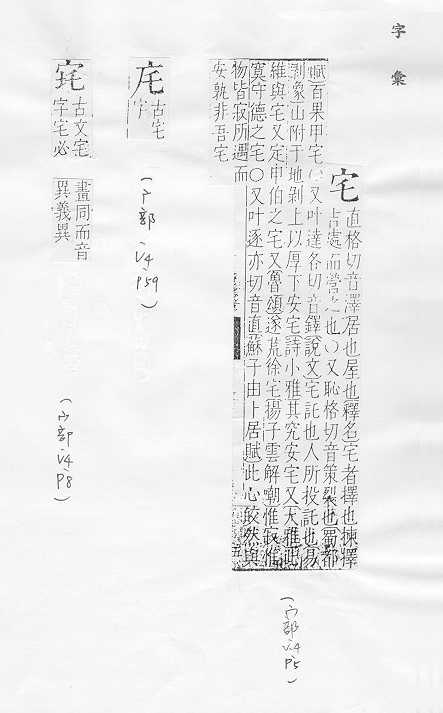 字彙
宅
直格切音澤居也屋也釋名宅者擇也揀擇
吉處而營之也○又恥格切音策裂也蜀都
賦百果甲宅○又叶達各切音鐸說文宅託也人所投託也易
剝象山附于地剝上以厚下安宅詩小雅其究安宅又大雅
維與宅又定申伯之宅又魯頌遂荒徐宅揚子雲解嘲惟寂惟
寞守德之宅○又叶逐亦切音直蘇子由卜居賦此心皎然與
物皆寂所遇而
安孰非吾宅
(宀部 V4 P5)
㡯
古宅
字
(广部 V4 P59)
古文宅 畫同而音
字宅必 異義異
(宀部 V4 P8)